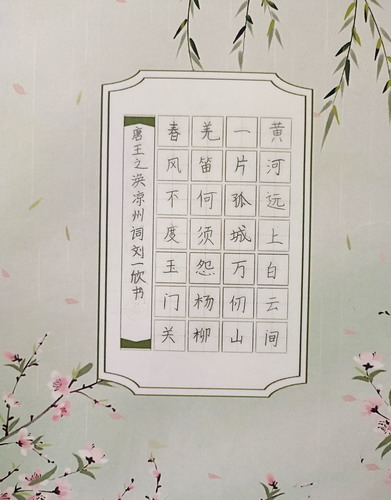 黄河远上白云间
一片孤城万仞山
羌笛何须怨杨柳
春风不度玉门关
唐王之涣凉州词刘一欣书